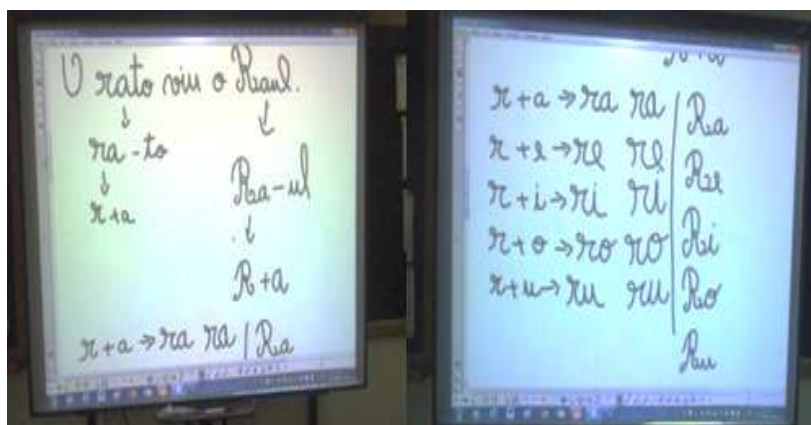 O rato viu o Raul.
↓ ↓
ra-to
↓
r+a
Ra-ul
↓
R+a
r+a→ra ra | Ra
r+a→ra ra | Ra
r+e→re re | Re
r+i→ri ri | Ri
r+o→ro ro | Ro
r+u→ru ru | Ru